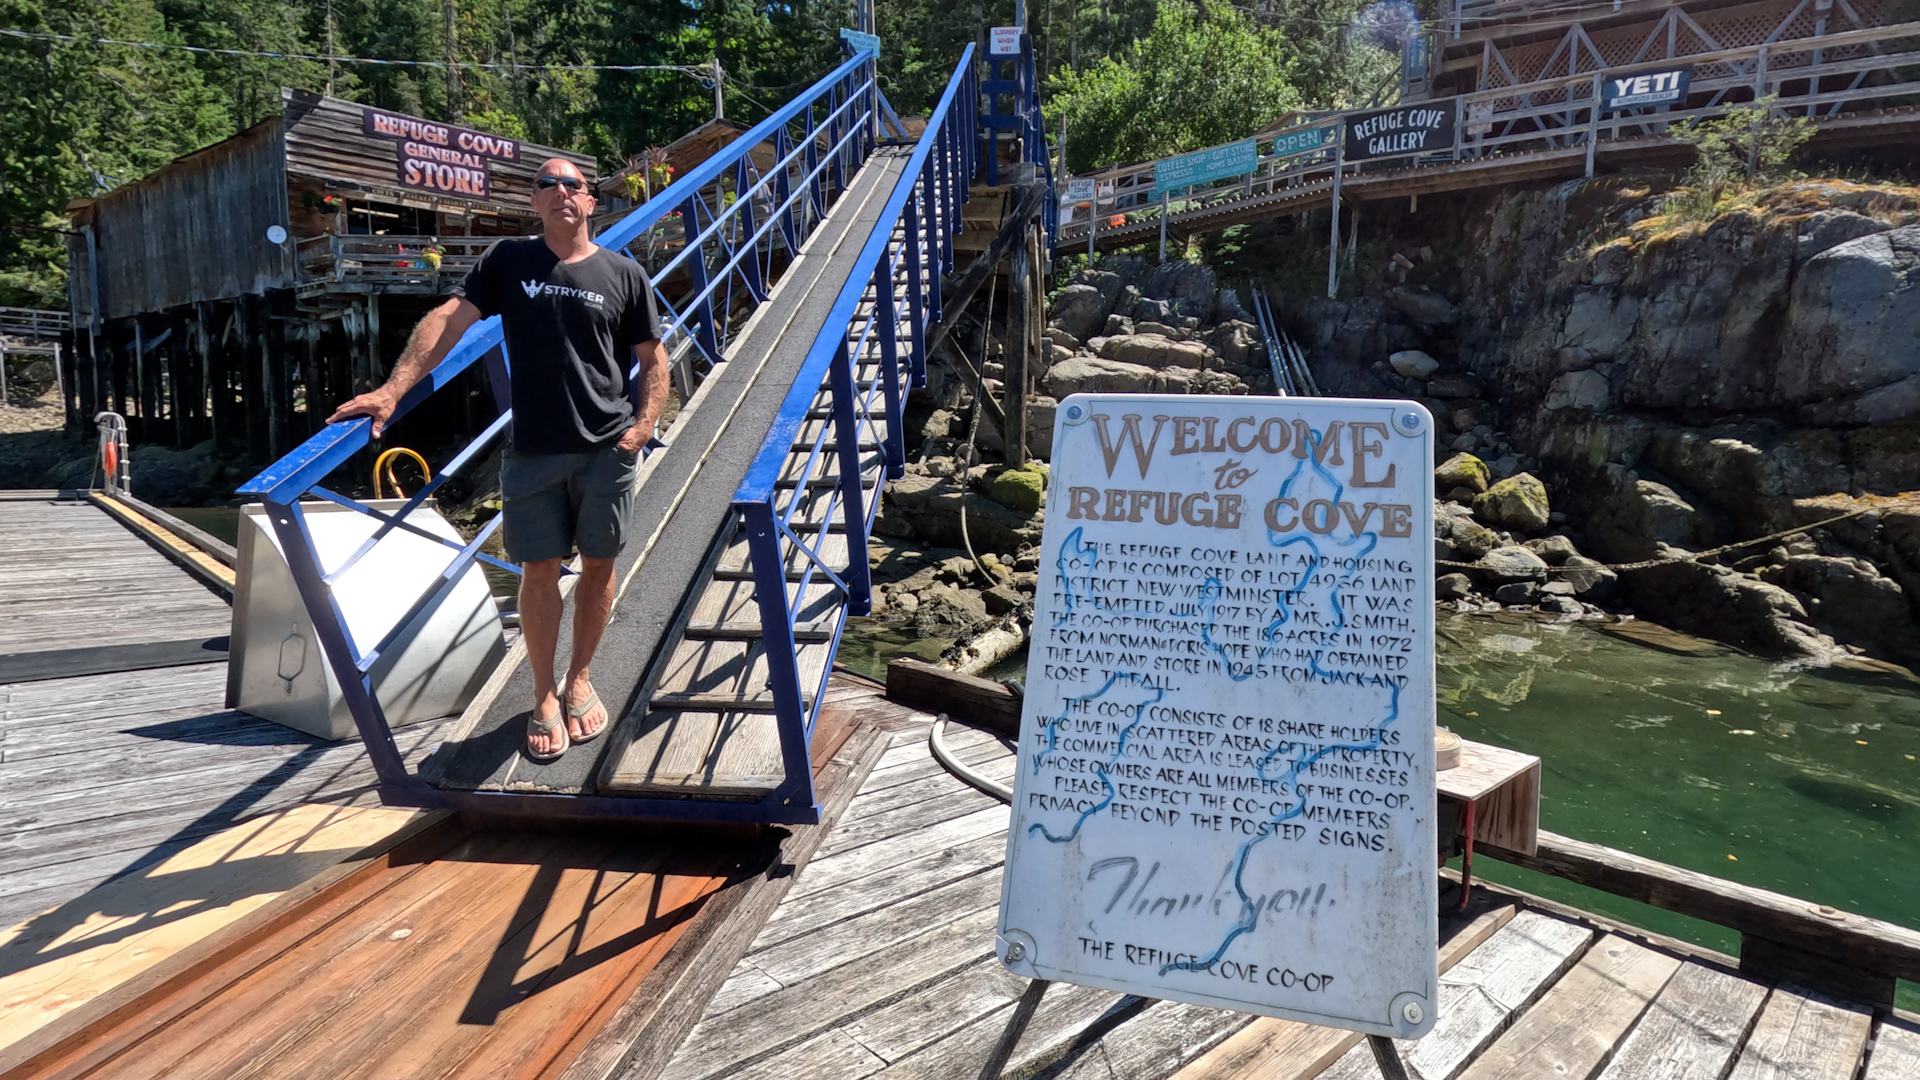 SLIPPERY
WHEN
WET
YETI
AUTHORIZED DEALER
REFUGE COVE
GENERAL
STORE
REFUGE COVE
GALLERY
OPEN
COFFEE SHOP - GIFT STORE
ESPRESSO - HOME BAKING
REFUGE
COVE
GALLERY
STRYKER
BOATS
WELCOME
to
REFUGE COVE
THE REFUGE COVE LAND AND HOUSING
CO-OP IS COMPOSED OF LOT 4936 LAND
DISTRICT NEW WESTMINSTER. IT WAS
PRE-EMPTED JULY 1917 BY A MR. J. SMITH.
THE CO-OP PURCHASED THE 186 ACRES IN 1972
FROM NORMAN & DORIS HOPE WHO HAD OBTAINED
THE LAND AND STORE IN 1945 FROM JACK AND
ROSE TINDALL.
THE CO-OP CONSISTS OF 18 SHARE HOLDERS
WHO LIVE IN SCATTERED AREAS OF THE PROPERTY
THE COMMERCIAL AREA IS LEASED TO BUSINESSES
WHOSE OWNERS ARE ALL MEMBERS OF THE CO-OP.
PLEASE RESPECT THE CO-OP MEMBERS
PRIVACY BEYOND THE POSTED SIGNS.
Thank you.
THE REFUGE COVE CO-OP